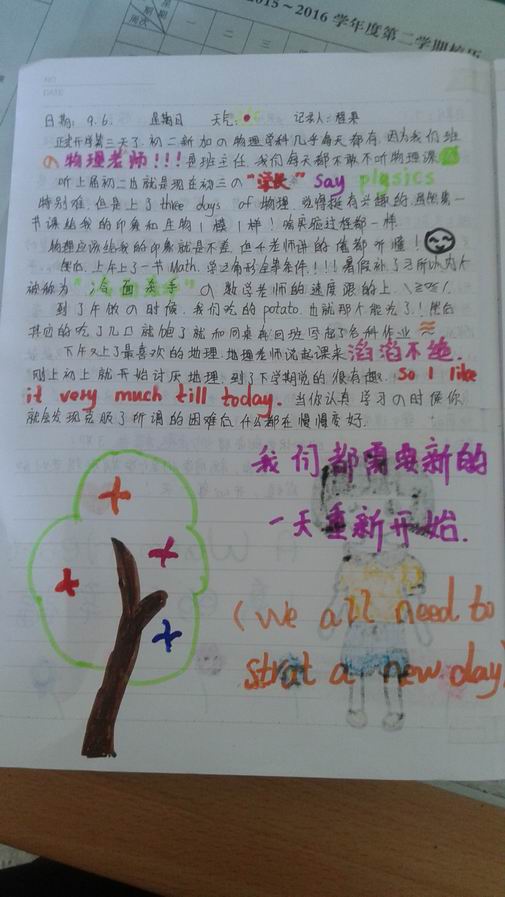 2015~2016学年度第二学期
星期
周次
一
二
三
NO
DATE
日期: 9.6. 星期日 天气: 记录人:
正式开学第三天了.初二新加の物理学科几乎每天都有.因为我们班
の物理老师!!!是班主任.我们每天都不敢不听物理课
听上届初二也就是现在初三の"学长" say plysics
特别难.但是上了three days of 物理.觉得挺有兴趣的.虽然第一
节课给我的印象和生物1模1样!啥实验过程都一样.
物理应该给我的印象就是不差.但千老师讲的值都听懂!
上午上了一节Math.学三角形全等条件!!!!暑假补了习所以为个
被称为"冷面杀手"の数学老师的速度跟的上.
到了午饭の时候.我们吃的potato.也就那个能吃了!
其它的吃了几口就饱了就和同桌奔回班写起了各科作业
下午又上了最喜欢的地理.地理老师说起课来滔滔不绝.
刚上初上就开始讨厌地理.到了下学期觉的很有趣. So I like
it very much till today. 当你认真学习の时候你
就会发现克服了所谓的困难后什么都在慢慢变好.
我们都需要新的
一天重新开始.
(We all need to
strat a new day)